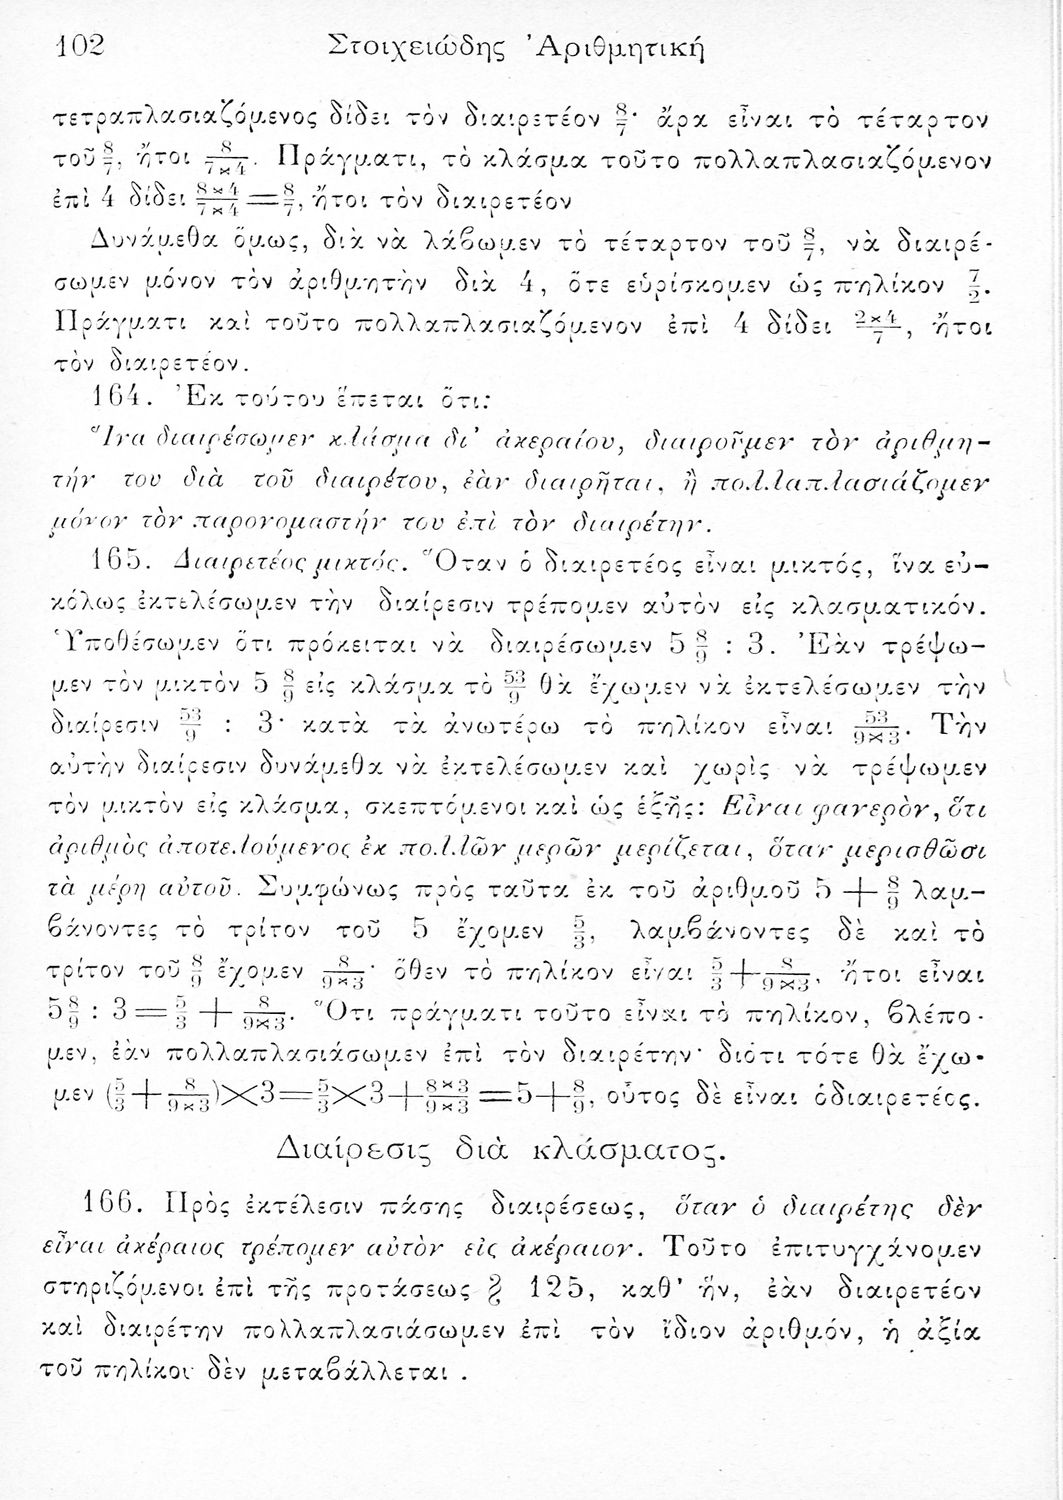 102 Στοιχειώδης Ἀριθμητική
τετραπλασιαζόμενος δίδει τὸν διαιρετέον 8/7· ἄρα εἶναι τὸ τέταρτον
τοῦ 8/7, ἤτοι 8/(7×4). Πράγματι, τὸ κλάσμα τοῦτο πολλαπλασιαζόμενον
ἐπὶ 4 δίδει (8×4)/(7×4)=8/7, ἤτοι τὸν διαιρετέον
Δυνάμεθα ὅμως, διὰ νὰ λάβωμεν τὸ τέταρτον τοῦ 8/7, νὰ διαιρέ-
σωμεν μόνον τὸν ἀριθμητὴν διὰ 4, ὅτε εὑρίσκομεν ὡς πηλίκον 7/2.
Πράγματι καὶ τοῦτο πολλαπλασιαζόμενον ἐπὶ 4 δίδει (2×4)/7, ἤτοι
τὸν διαιρετέον.
164. Ἐκ τούτου ἕπεται ὅτι:
Ἵνα διαιρέσωμεν κλάσμα δι' ἀκεραίου, διαιροῦμεν τὸν ἀριθμη-
τήν του διὰ τοῦ διαιρέτου, ἐὰν διαιρῆται, ἢ πολλαπλασιάζομεν
μόνον τὸν παρονομαστήν του ἐπὶ τὸν διαιρέτην.
165. Διαιρετέος μικτός. Ὅταν ὁ διαιρετέος εἶναι μικτός, ἵνα εὐ-
κόλως ἐκτελέσωμεν τὴν διαίρεσιν τρέπομεν αὐτὸν εἰς κλασματικόν.
Ὑποθέσωμεν ὅτι πρόκειται νὰ διαιρέσωμεν 5 8/9 : 3. Ἐὰν τρέψω-
μεν τὸν μικτὸν 5 8/9 εἰς κλάσμα τὸ 53/9 θὰ ἔχωμεν νὰ ἐκτελέσωμεν τὴν
διαίρεσιν 53/9 : 3· κατὰ τὰ ἀνωτέρω τὸ πηλίκον εἶναι 53/(9×3). Τὴν
αὐτὴν διαίρεσιν δυνάμεθα νὰ ἐκτελέσωμεν καὶ χωρὶς νὰ τρέψωμεν
τὸν μικτὸν εἰς κλάσμα, σκεπτόμενοι καὶ ὡς ἑξῆς: Εἶναι φανερὸν, ὅτι
ἀριθμὸς ἀποτελούμενος ἐκ πολλῶν μερῶν μερίζεται, ὅταν μερισθῶσι
τὰ μέρη αὐτοῦ. Συμφώνως πρὸς ταῦτα ἐκ τοῦ ἀριθμοῦ 5 + 8/9 λαμ-
βάνοντες τὸ τρίτον τοῦ 5 ἔχομεν 5/3, λαμβάνοντες δὲ καὶ τὸ
τρίτον τοῦ 8/9 ἔχομεν 8/(9×3)· ὅθεν τὸ πηλίκον εἶναι 5/3+8/(9×3), ἤτοι εἶναι
5 8/9 : 3 = 5/3 + 8/(9×3). Ὅτι πράγματι τοῦτο εἶναι τὸ πηλίκον, βλέπο-
μεν, ἐὰν πολλαπλασιάσωμεν ἐπὶ τὸν διαιρέτην· διότι τότε θὰ ἔχω-
μεν (5/3+8/(9×3))×3=5/3×3+(8×3)/(9×3)=5+8/9, οὗτος δὲ εἶναι ὁδιαιρετέος.
Διαίρεσις διὰ κλάσματος.
166. Πρὸς ἐκτέλεσιν πάσης διαιρέσεως, ὅταν ὁ διαιρέτης δὲν
εἶναι ἀκέραιος τρέπομεν αὐτὸν εἰς ἀκέραιον. Τοῦτο ἐπιτυγχάνομεν
στηριζόμενοι ἐπὶ τῆς προτάσεως § 125, καθ' ἥν, ἐὰν διαιρετέον
καὶ διαιρέτην πολλαπλασιάσωμεν ἐπὶ τὸν ἴδιον ἀριθμόν, ἡ ἀξία
τοῦ πηλίκου δὲν μεταβάλλεται .